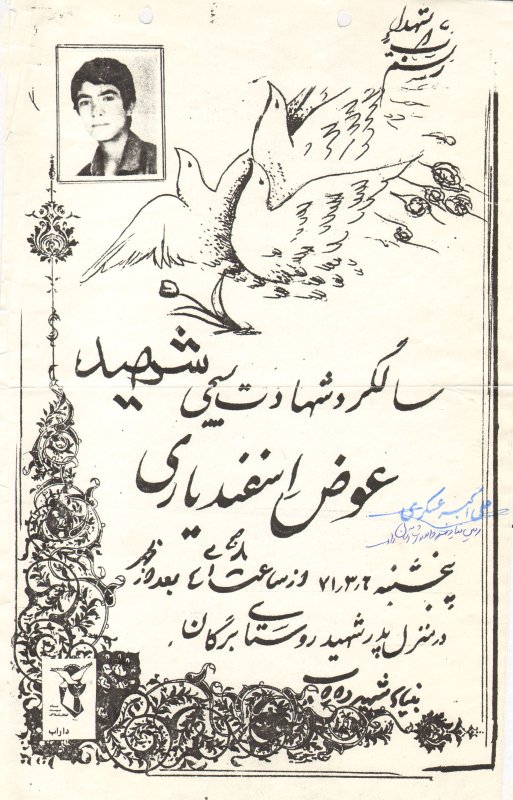 سالگرد شهادت بسیجی شهید
عوض اسفندیاری
علی اکبر عسکری
پنجشنبه ۷۱٫۳٫۶ از ساعت بعدازظهر
در منزل پدر شهید روستای برگان
بنیاد شهید داراب
داراب